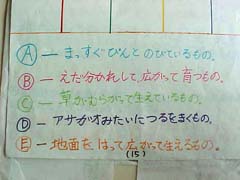 Ⓐ — まっすぐぴんとのびているもの。
Ⓑ — えだ分かれして、広がって育つもの。
Ⓒ — 草がむらがって生えているもの。
Ⓓ — アサガオみたいにつるをまくもの。
Ⓔ — 地面をはって広がって生えるもの。
(15)